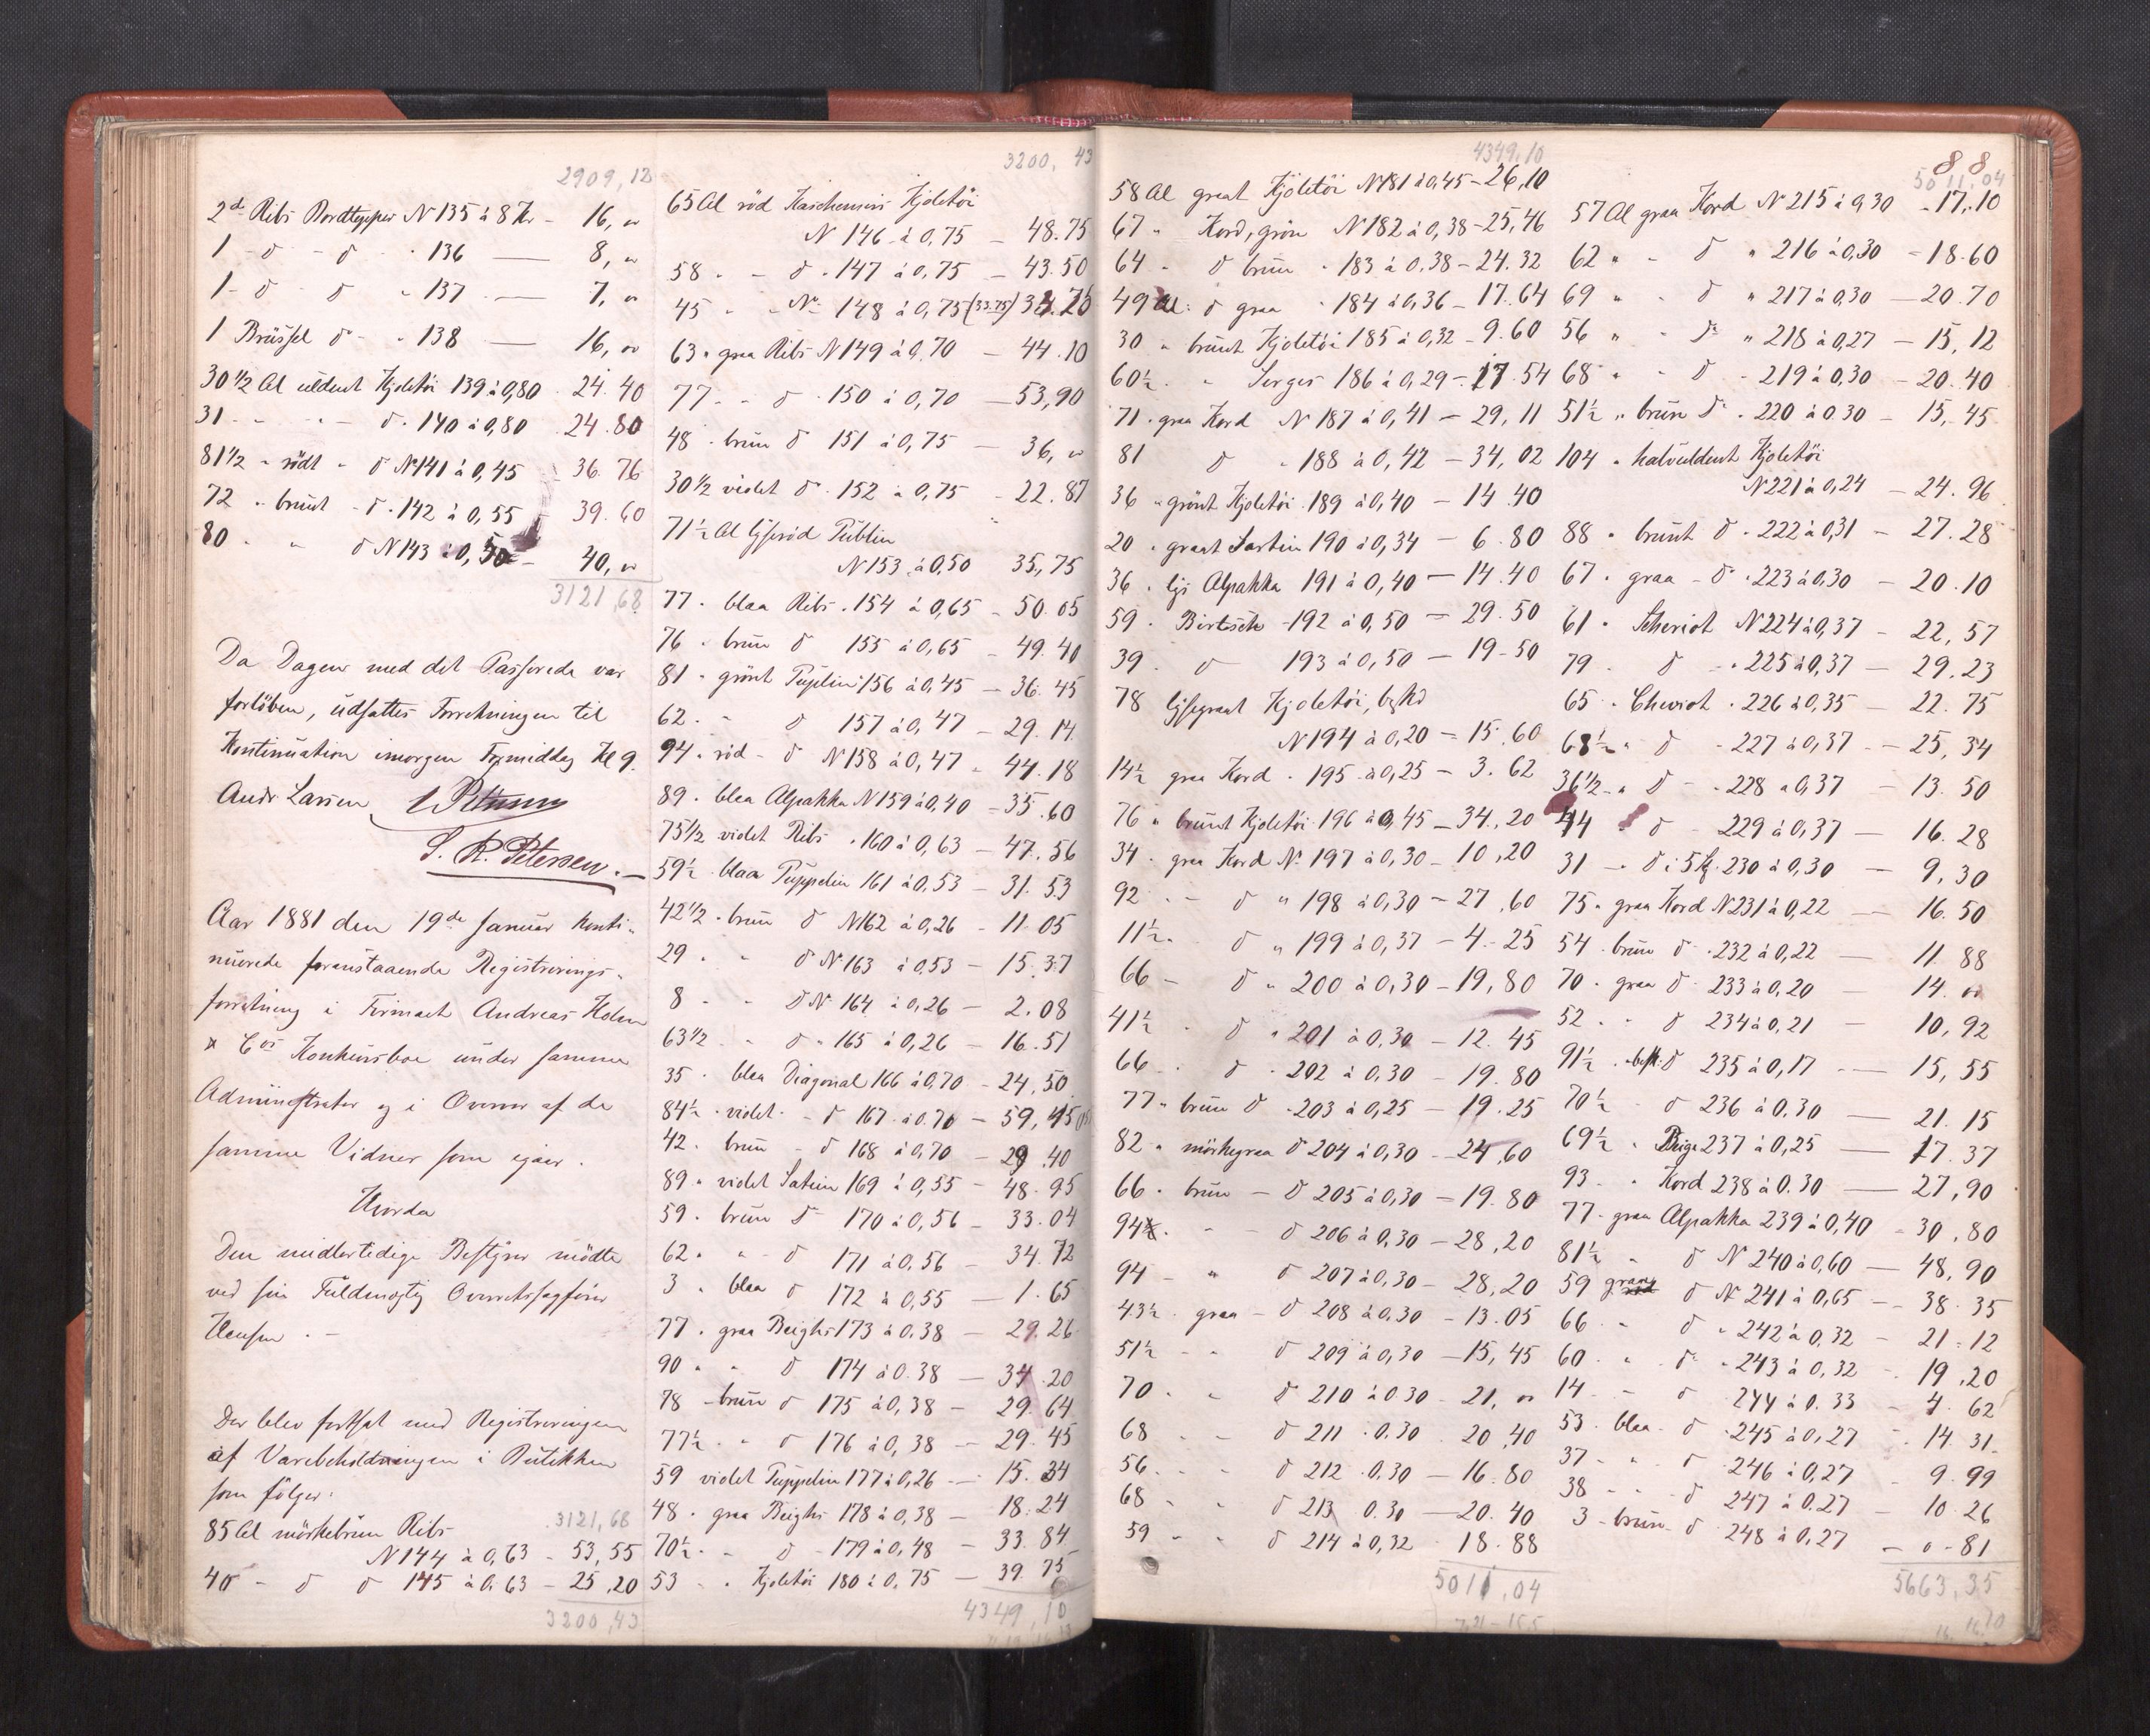 2909,12
2d Ribs Bordtepper N 135 à 8 Kr - 16, "
1 - d - d - 136 — 8, "
1 - d - d - 137 — 7, "
1 Brüssel do - 138 — 16, "
30 1/2 Al uldent Kjoletøi 139 à 0,80 24.40
31 - - - d. 140 à 0,80 24.80
81 1/2 - rödt - d N 141 à 0,45 36.76
72 - brunt - d. 142 à 0,55 39.60
80 - " d N 143 à 0,50 - 40, "
3121,68
Da Dagen med det Passerede var
forløben, udsattes Forretningen til
Kontinuation imorgen Formiddag Kl 9.
Andr Larsen
S. R. Petersen.
Aar 1881 den 19de Januar konti-
nuerede foranstaaende Registrerings-
forretning i Firmaet Andreas Holm
& Cos Konkursboe under samme
Administrator og i Overvær af de
samme Vidner som igaar.
Hvorda
Den midlertidige Bestyrer mødte
ved sin Fuldmægtig Overretssagfører
Hansen. -
Der blev fortsat med Registreringen
af Varebeholdningen i Butikken
som følger:
3121,68
85 Al mörkebrun Ribs
N 144 à 0,63 - 53,55
40 - d d 145 à 0.63 - 25,20
3200,43
3200,43
65 Al röd Kjoletöi
N 146 à 0,75 - 48.75
58 - - d. 147 à 0,75 - 43.50
45 - No 148 à 0,75 (33.75)
63 - graa Ribs N 149 à 0,70 - 44.10
77 - - d. 150 à 0,70 - 53,90
48 - brun d 151 à 0,75 - 36, "
30 1/2 violet d. 152 à 0,75 - 22.87
71 1/2 Al lyserød Püblin
N 153 à 0,50 35,75
77 - blaa Ribs. 154 à 0,65 - 50.05
76 - brun d 155 à 0,65 - 49.40
81 - grönt Püplin 156 à 0,45 - 36.45
62 - - d 157 à 0,47 - 29.14
94 - röd - d N 158 à 0,47 - 44.18
89 - blaa Alpakka N 159 à 0,40 - 35.60
75 1/2 violet Ribs. 160 à 0,63 - 47.56
59 1/2 - blaa Püppelin 161 à 0,53 - 31.53
42 1/2 - brun d N 162 à 0,26 - 11.05
29 - - d N 163 à 0,53 - 15.37
8 - - d N 164 à 0,26 - 2.08
63 1/2 - d - 165 à 0,26 - 16.51
35 - blaa Diagonal 166 à 0,70 - 24,50
84 1/2 - violet - d 167 à 0.70 - 59,15
42 - brun - d 168 à 0,70 - 29.40
89 - violet Satin 169 à 0,55 - 48.95
59 - brun d 170 à 0,56 - 33.04
62 - - d 171 à 0,56 - 34.72
3 - blaa d 172 à 0,55 - 1.65
77 - graa Beighs 173 à 0.38 - 29.26
90 - - d 174 à 0.38 - 34.20
78 - brun d 175 à 0,38 - 29.64
77 1/2 - - d 176 à 0,38 - 29.45
59 violet Püppelin 177 à 0,26 - 15.34
48 - graa Beighs 178 à 0,38 - 18.24
70 1/2 - d - 179 à 0,48 - 33.84
53 - - Kjoletöi 180 à 0,75 - 39.75
4349,10
4349,10
58 Al graat Kjöletöi N 181 à 0,45 - 26,10
67 - Kord, grön N 182 à 0,38 - 25,46
64 - d brun - 183 à 0.38 - 24.32
49 Al: d graa - 184 à 0,36 - 17.64
30 - brunt Kjoletöi 185 à 0,32 - 9.60
60 1/2 - - Serges 186 à 0,29 - 17.54
71 - graa Kord N 187 à 0,41 - 29,11
81 d - 188 à 0,42 - 34,02
36 - grönt Kjoletöi 189 à 0,40 - 14.40
20 - graat 190 à 0,34 - 6.80
36 - lys Alpakka 191 à 0,40 - 14.40
59 - 192 à 0,50 - 29.50
39 - d 193 à 0,50 - 19-50
78 lysegraat Kjoletöi, beskd
N 194 à 0,20 - 15.60
14 1/2 graa Kord - 195 à 0,25 - 3.62
76 - brunt Kjoletöi 196 à 0,45 - 34,20
34 - graa Kord No 197 à 0,30 - 10,20
92 - - d " 198 à 0,30 - 27,60
11 1/2 - d " 199 à 0,37 - 4.25
66 - d " 200 à 0,30 - 19,80
41 1/2 - d " 201 à 0,30 - 12.45
66 - - d - 202 à 0,30 - 19.80
77 - brun d - 203 à 0,25 - 19.25
82 - mörkegraa d 204 à 0,30 - 24,60
66 - brun - d 205 à 0,30 - 19.80
94 - - d 206 à 0.30 - 28,20
94 - " d 207 à 0,30 - 28,20
43 1/2 - graa - d 208 à 0.30 - 13.05
51 1/2 - - d 209 à 0,30 - 15,45
70 - - d 210 à 0.30 - 21, "
68 - - d 211 - 0.30 20,40
56 - - d 212 - 0.30 - 16.80
68 - - d 213 0.30 - 20.40
59 - - d 214 à 0,32 - 18.88
5011,04
88
5011.04
57 Al graa Kord N 215 à 0,30 - 17,10
62 " - d " 216 à 0,30 - 18.60
69 " - d " 217 à 0,30 - 20.70
56 " - d " 218 à 0,27 - 15,12
68 " - d - 219 à 0,30 - 20.40
51 1/2 - brun d - 220 à 0.30 - 15,45
104 - halvuldent Kjoletöi
N 221 à 0,24 - 24.96
88 - brunt d - 222 à 0,31 - 27.28
67 - graa - d - 223 à 0,30 - 20.10
61 - Scheviot N 224 à 0,37 - 22,57
79 - d - 225 à 0,37 - 29,23
65 - Cheviot - 226 à 0,35 - 22.75
68 1/2 - d - 227 à 0,37 - 25,34
36 1/2 - d - 228 à 0,37 - 13.50
44 - d - 229 à 0,37 - 16.28
31 - d i 5 St. 230 à 0,30 - 9,30
75 - graa Kord N 231 à 0,22 - 16.50
54 - brun d - 232 à 0,22 - 11.88
70 - graa d - 233 à 0,20 - 14. "
52 - - d 234 à 0,21 - 10,92
91 1/2 - besk: d 235 à 0,17 - 15,55
70 1/2 - d 236 à 0.30 - 21.15
69 1/2 - Beige 237 à 0,25 - 17.37
93 - - Kord 238 à 0.30 - 27,90
77 - graa Alpakka 239 à 0,40 - 30,80
81 1/2 - d N 240 à 0,60 - 48,90
59 graa d N 241 à 0,65 - 38.35
66 - d - 242 à 0,32 - 21.12
60 - - d - 243 à 0,32 - 19,20
14 - - d 244 à 0.33 - 4.62
53 - blaa - d - 245 à 0,27 - 14.31
37 - - d - 246 à 0,27 - 9.99
38 - - d 247 à 0.27 - 10.26
3 - brun - d 248 à 0,27 - 0-81
5663,35